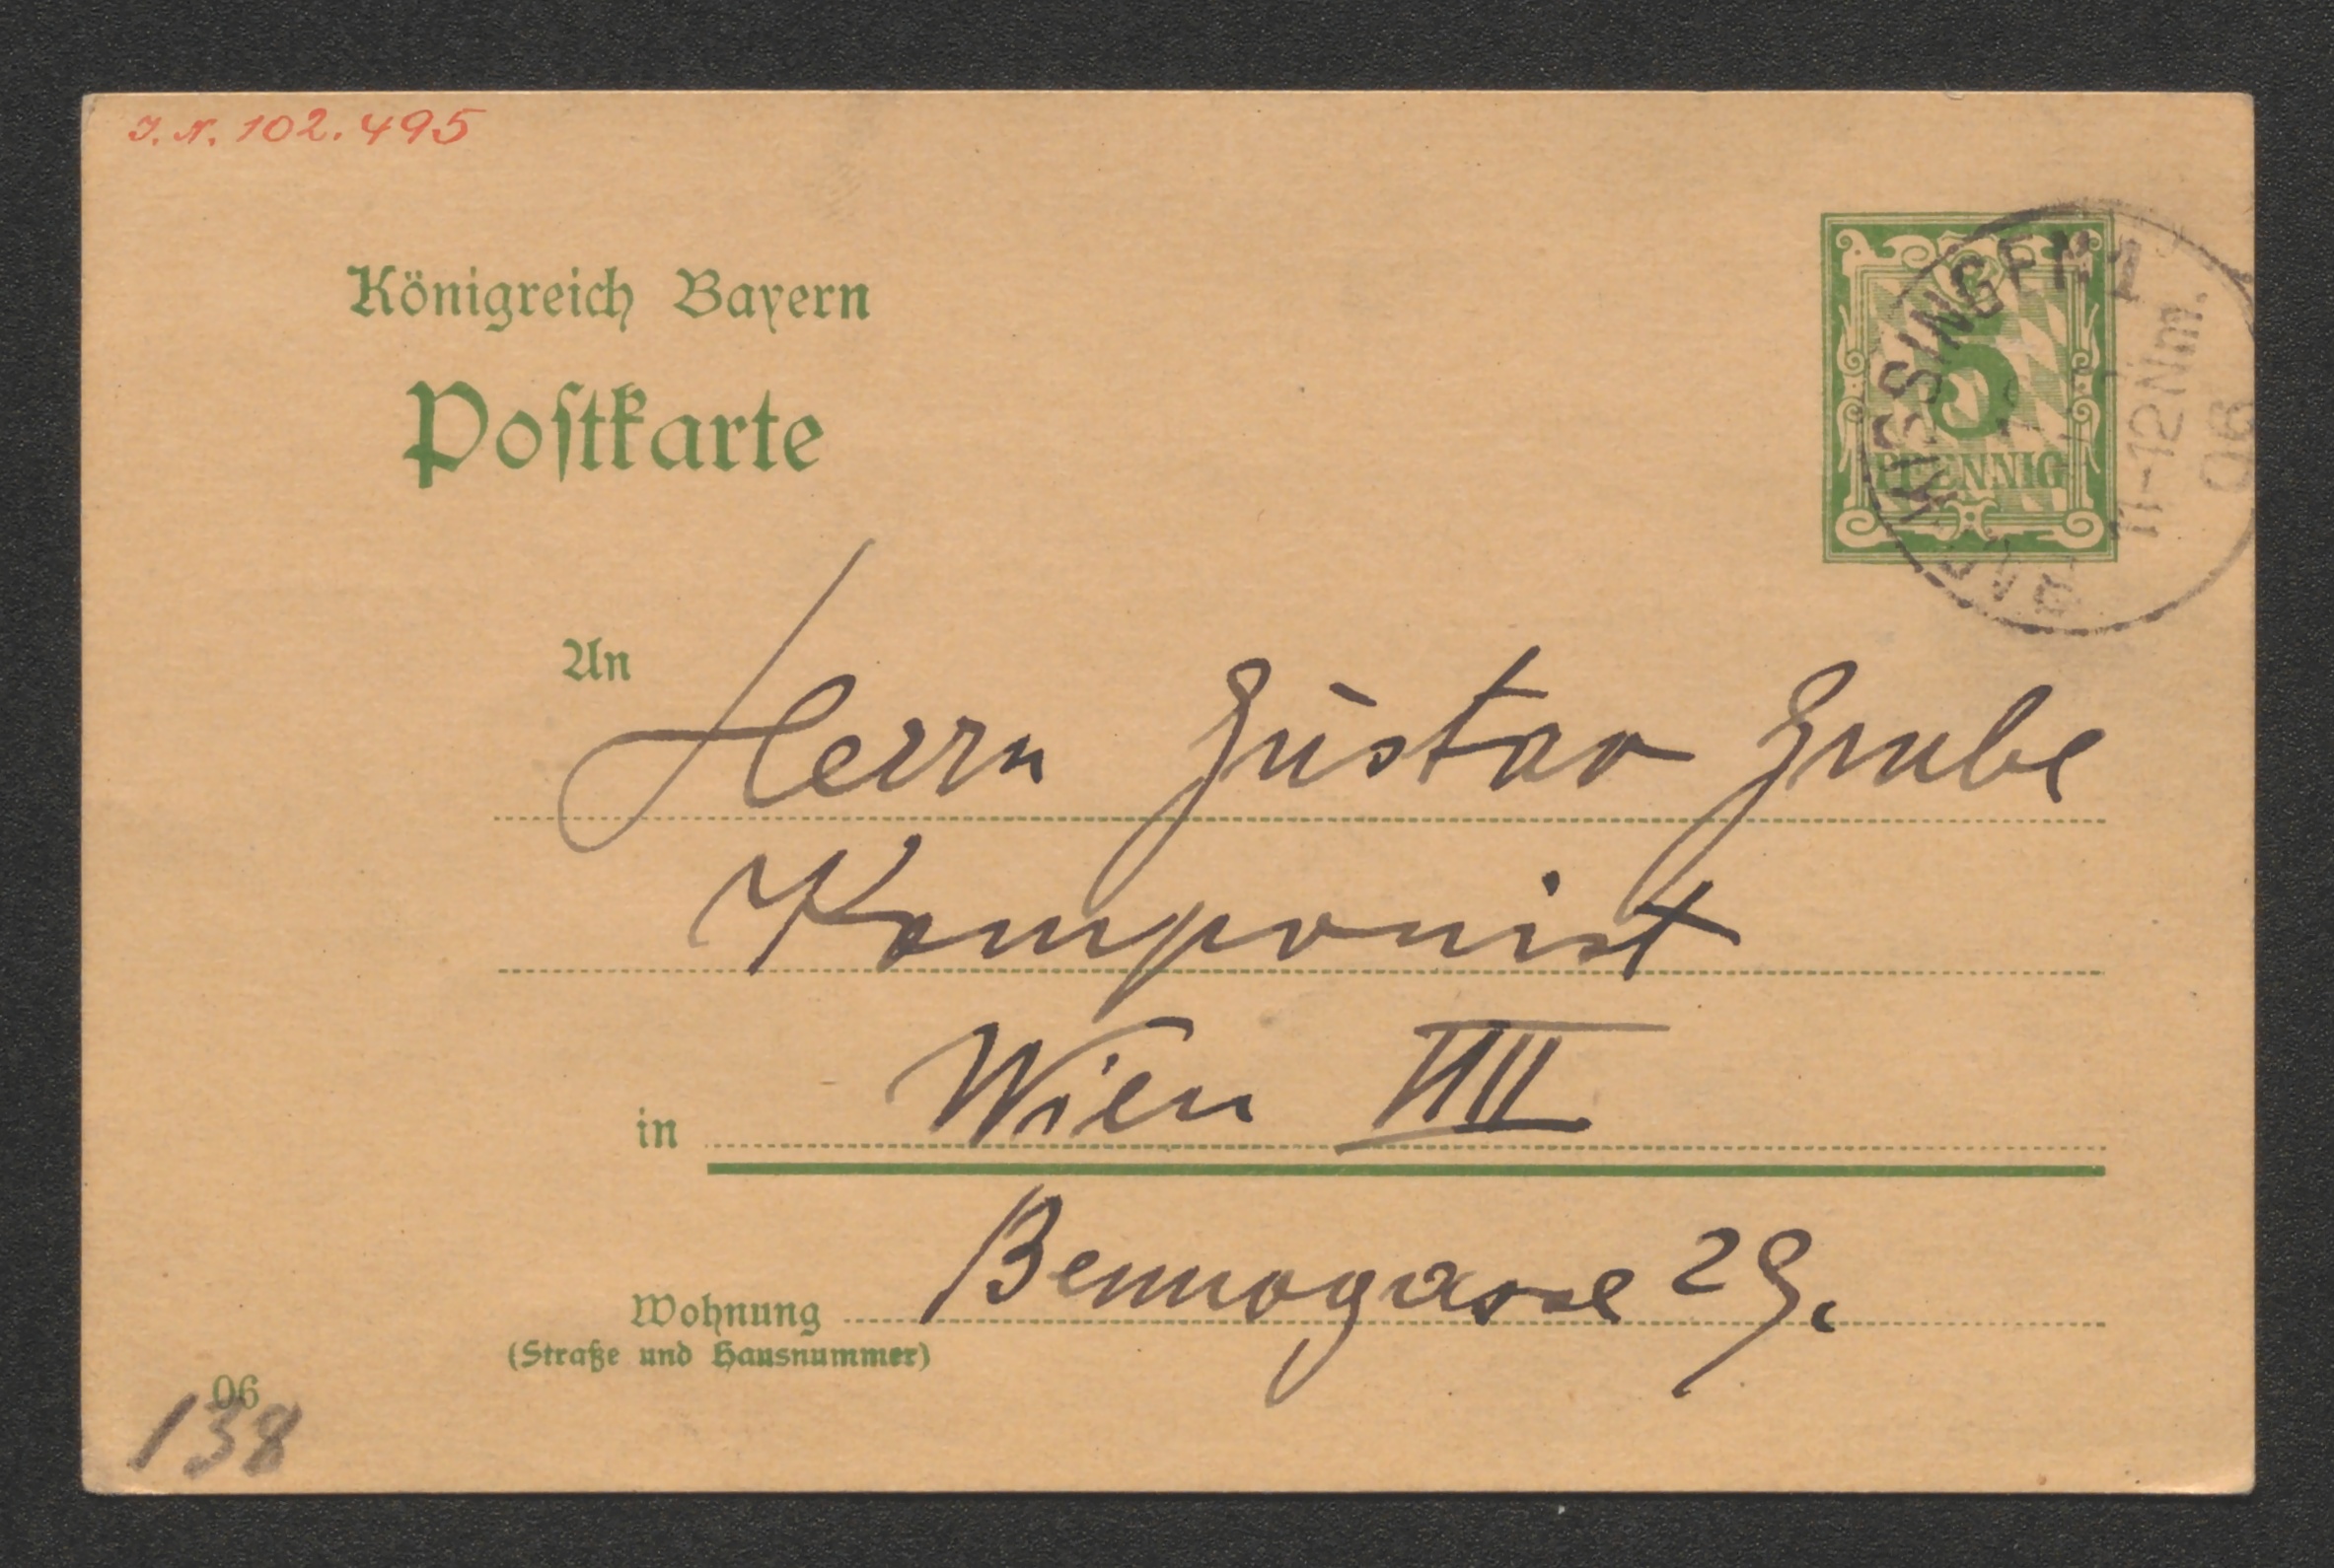 J. N. 102.495
Königreich Bayern
Postkarte
5
PFENNIG
BAD KISSINGEN 1
11-12 Nm.
06
An Herrn Gustav Grube
Komponist
in Wien VIII
Wohnung Bennogasse 29.
(Straße und Hausnummer)
06
138